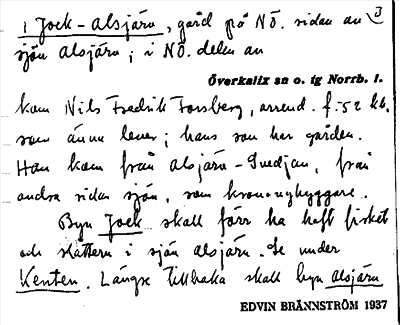 1 Jock-alsjärn, gård på NÖ. sidan av 3
sjön alsjärn; i NÖ. delen av
Överkalix sn o. tg Norrb. l.
kom Nils Fredrik Forsberg, arrend. f. 52 kb.
som ännu lever; hans son har gården.
Han kom från alsjärn-Svedjan, från
andra sidan sjön, som krononybyggare.
Byn Jock skall förr ha haft fisket
och slåttern i sjön alsjärn. Se under
Kenten. Längre tillbaka skall byn alsjärn
EDVIN BRÄNNSTRÖM 1937